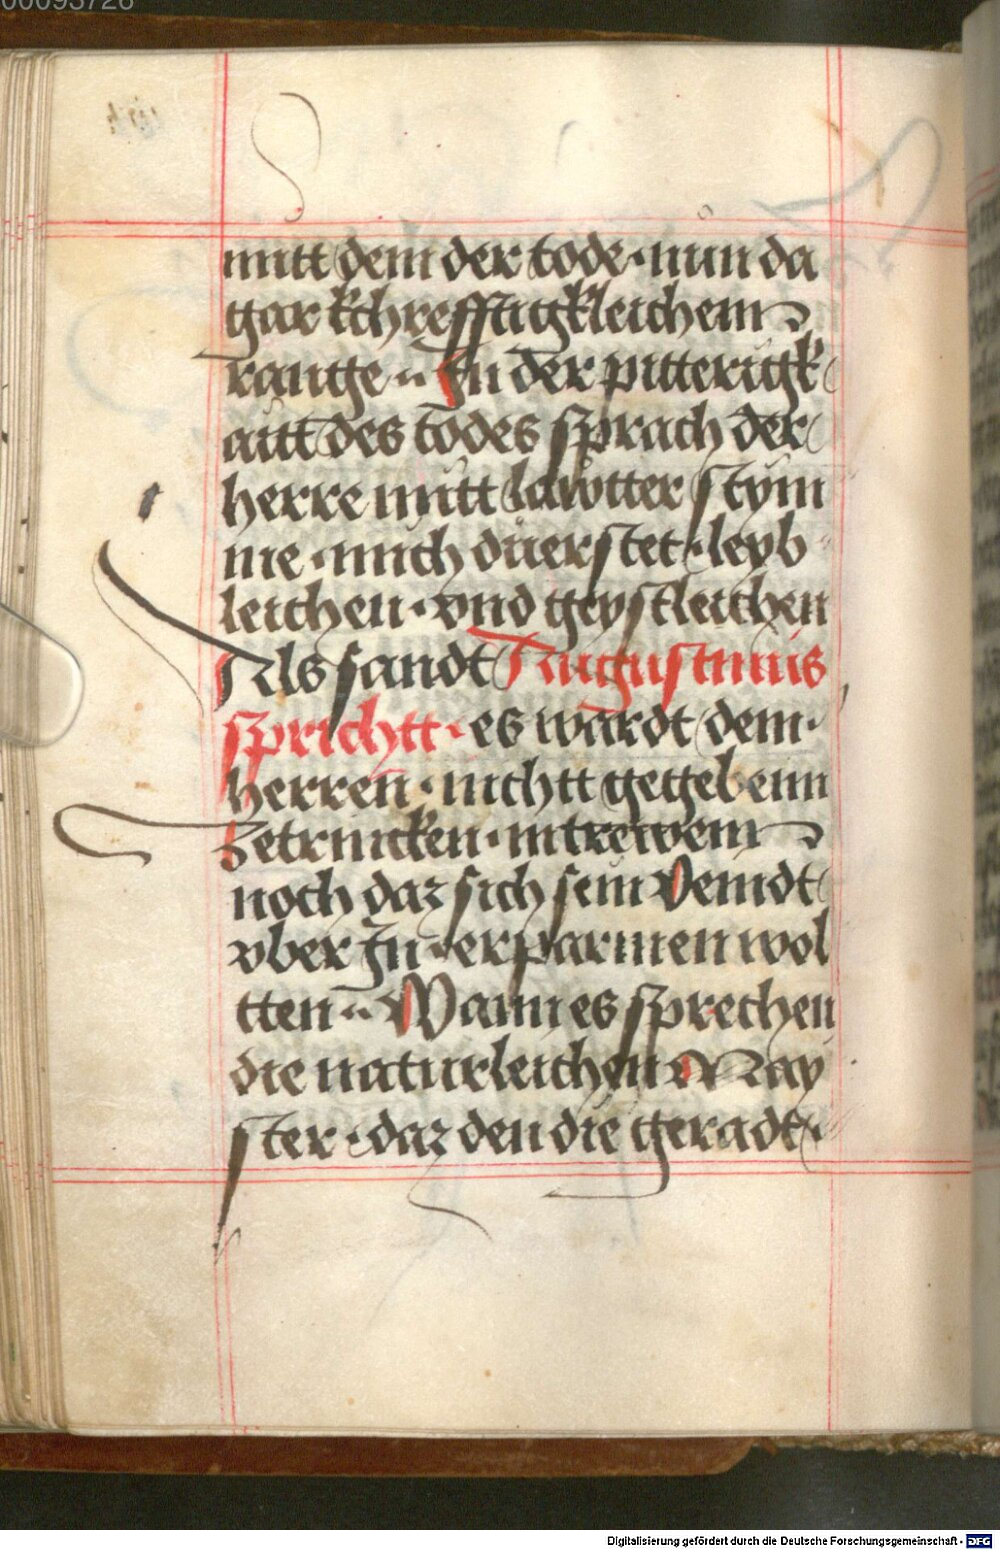 00093726
mitt dem der tode · nun da
gar kchrefftigkleichem
range ·· In der pitterigk
aitt des todes sprach der
herre mitt lawtter stym
me · mich dúerstet · leyb
leichen · vnd geystleichen
Als sandt Augustinus
sprichtt · es wardt dem ·
herren · nichtt gegebenn
zetrincken · in trewem
noch daz sich sein veindt
vber In · erparmen wol
tten ·· Wann es sprechen
die naturleichen May
ster · daz den die geradt ·
Digitalisierung gefördert durch die Deutsche Forschungsgemeinschaft - DFG